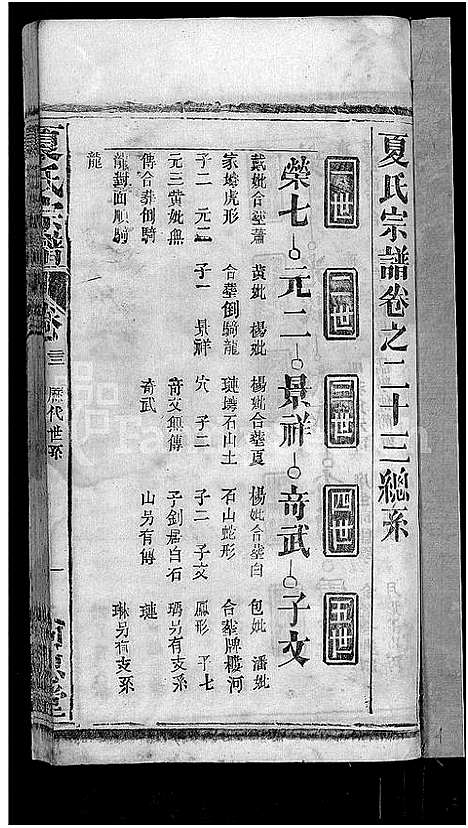 夏氏宗譜卷之二十三總系
一世 二世 三世 四世 五世
榮七 元二 景祥 奇武 子文
戴妣合塟蕭 黃妣 楊妣 楊妣合塟夏 楊妣合塟白 包妣 潘妣
家塘虎形 合塟倒騎龍 璉塼石山土 石山蛇形 合塟牌樓河
子二 元二 子一 景祥 穴 子二 子二 子文 鳳形 子七
元三黃妣無 奇文無傳 子劍居白石 瑀另有支系
傳合葬倒騎 奇武 山另有傳 璉
龍對面順騎 琳另有支系
龍
夏氏宗譜 卷二三 歷代世系 一